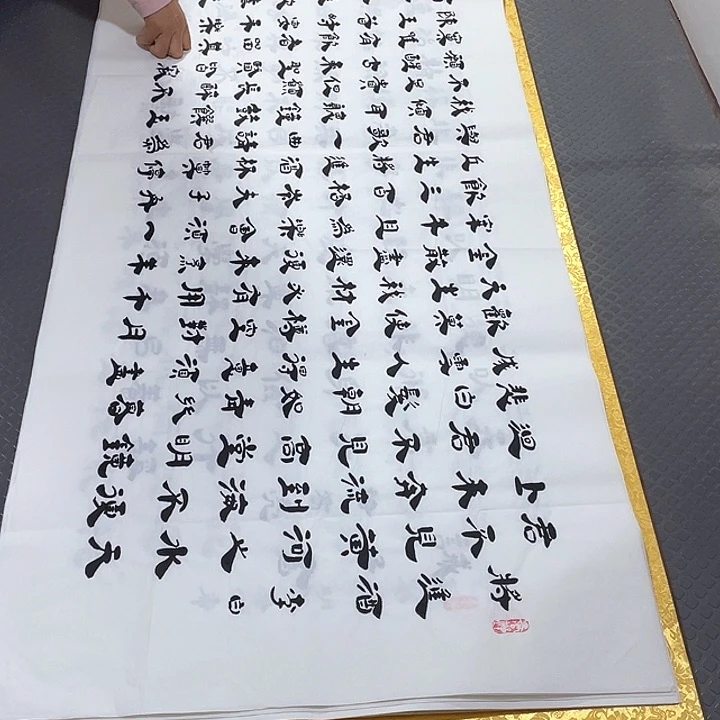 將進酒李白
君不見黃河之水天
上來奔流到海不復
迴君不見高堂明鏡
悲白髮朝如青絲暮
成雪人生得意須盡
歡莫使金樽空對月
天生我材必有用千
金散盡還復來烹羊
宰牛且為樂會須一
飲三百杯岑夫子丹
丘生將進酒杯莫停
與君歌一曲請君為
我傾耳聽鐘鼓饌玉
不足貴但願長醉不
願醒古來聖賢皆寂
寞惟有飲者留其
陳王昔時宴平樂